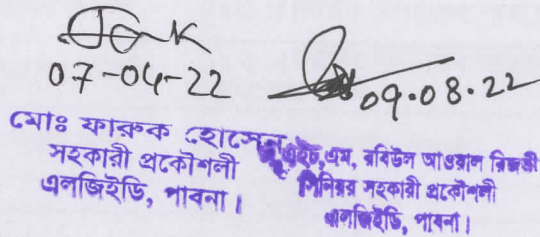 07-04-22
মোঃ ফারুক হোসেন
সহকারী প্রকৌশলী
এলজিইডি, পাবনা।
09.08.22
এইচ,এম, রবিউল আওয়াল রিজভী
সিনিয়র সহকারী প্রকৌশলী
এলজিইডি, পাবনা।